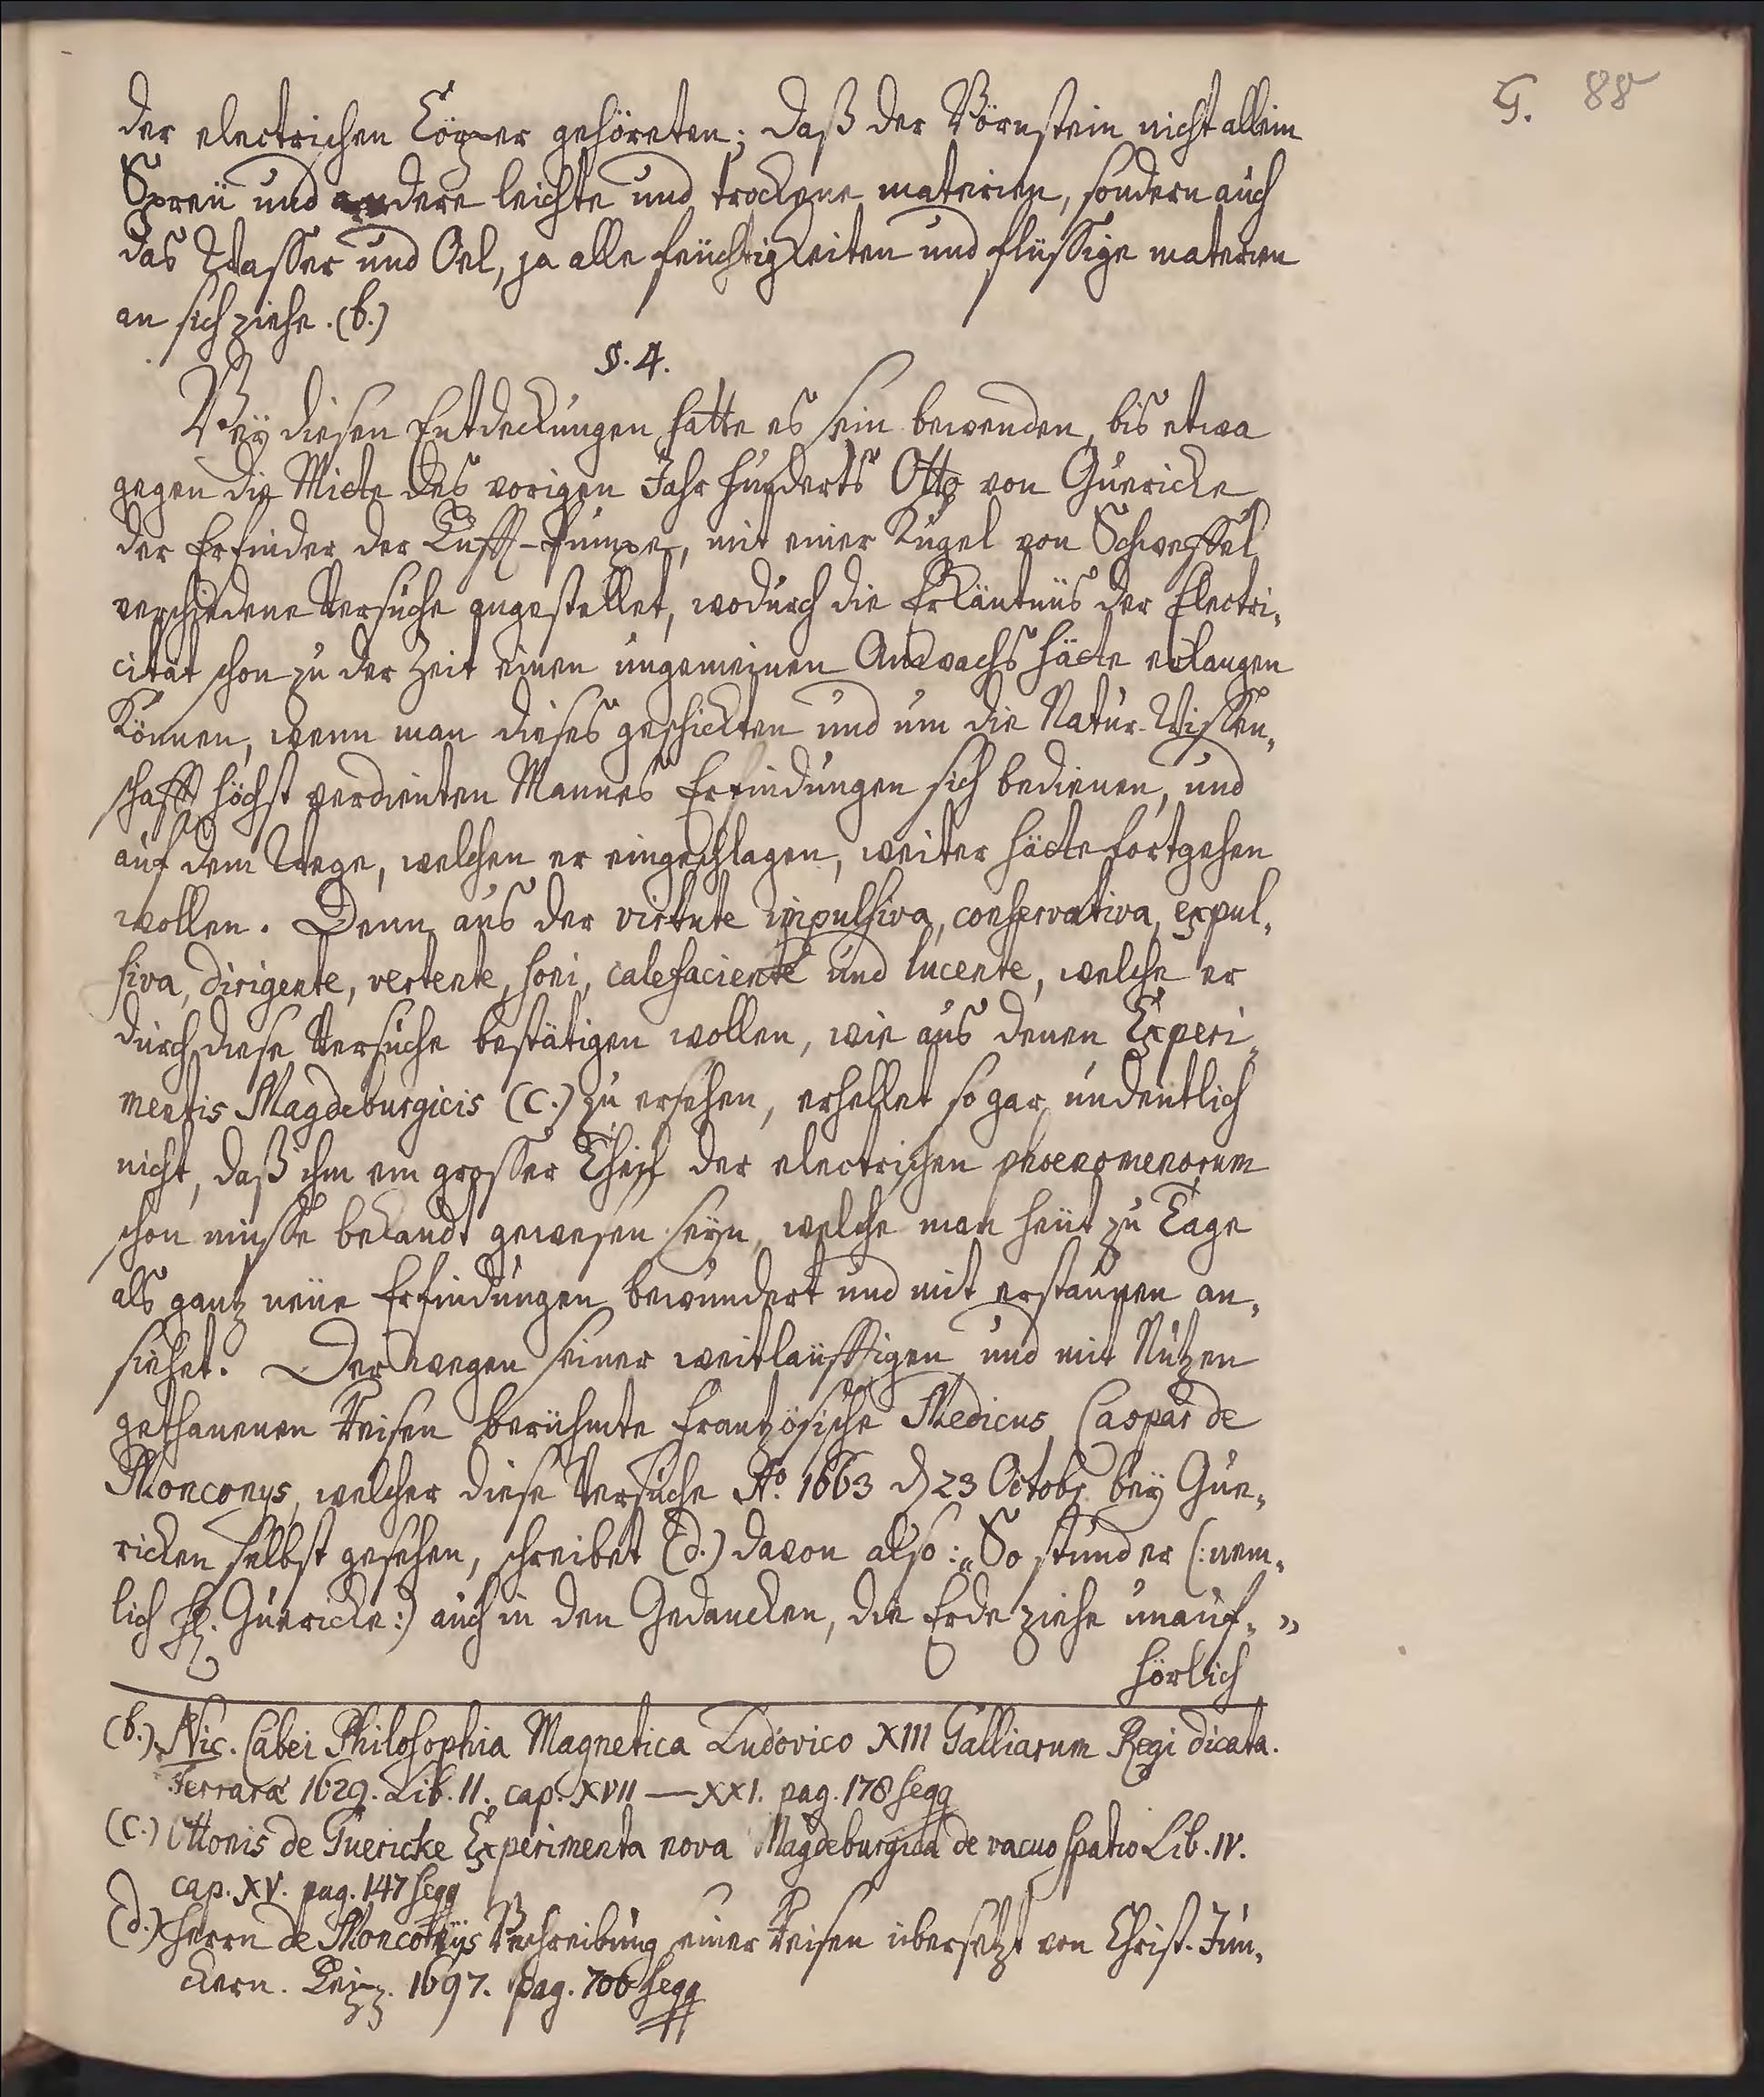 G. 88
der electrischen Cörper gehöreten; daß der Börnstein nicht allein
Spreü und andere leichte und trockene materien, sondern auch
das Wasser und Oel, ja alle feüchtigkeiten und flüssige materien
an sich ziehe. (b.)
§. 4.
Beÿ diesen Entdeckungen hatte es sein bewenden, bis etwa
gegen die Mitte des vorigen Jahr hunderts Otto von Guericke
der Erfinder der Lufft-Pumpe, mit einer Kugel von Schweffel
verschiedene Versuche angestellet, wodurch die Erkäntnüs der Electri„
citæt schon zu der Zeit einen ungemeinen Anwachs hätte erlangen
können, wenn man dieses geschickten und um die Natur-Wissen„
schafft höchst verdienten Mannes Erfindungen sich bedienen, und
auf dem Wege, welchen er eingeschlagen, weiter hätte fortgehen
wollen. Denn aus der virtute impulsiva, conservativa, expul„
siva, dirigente, vertente, soni, calefaciente und lucente, welche er
durch diese Versuche bestätigen wollen, wie aus denen Experi„
mentis Magdeburgicis (c.) zu ersehen, erhellet so gar undeutlich
nicht, daß ihm ein grosser Theil der electrischen phoenomenorum
schon müsse bekandt gewesen seÿn, welche man heüt zu Tage
als gantz neüe Erfindungen bewundert und mit erstaunen an„
siehet. Der wegen seiner weitläüfftigen und mit Nutzen
gethanenen Reisen berühmte Frantzösische Medicus, Caspar de
Monconys, welcher diese Versuche Aº. 1663 d 23 Octobr. beÿ Gue„
ricken selbst gesehen, schreibet (d.) davon also: „So stund er (: nem„
lich H. Guericke :) auch in den Gedancken, die Erde ziehe unauf„ „
hörlich
(b.) Nic. Cabei Philosophia Magnetica Ludovico XIII Galliarum Regi dicata.
Ferraræ 1629. Lib. II. cap. XVII — XXI. pag. 178 seqq
(c.) Ottonis de Guericke Experimenta nova Magdeburgica de vacuo spatio Lib. IV.
cap. XV. pag. 147 seqq
(d.) Herrn de Monconÿs Beschreibung seiner Reisen übersetzt von Christ. Jun„
ckern. Leipz. 1697. pag. 706 seqq